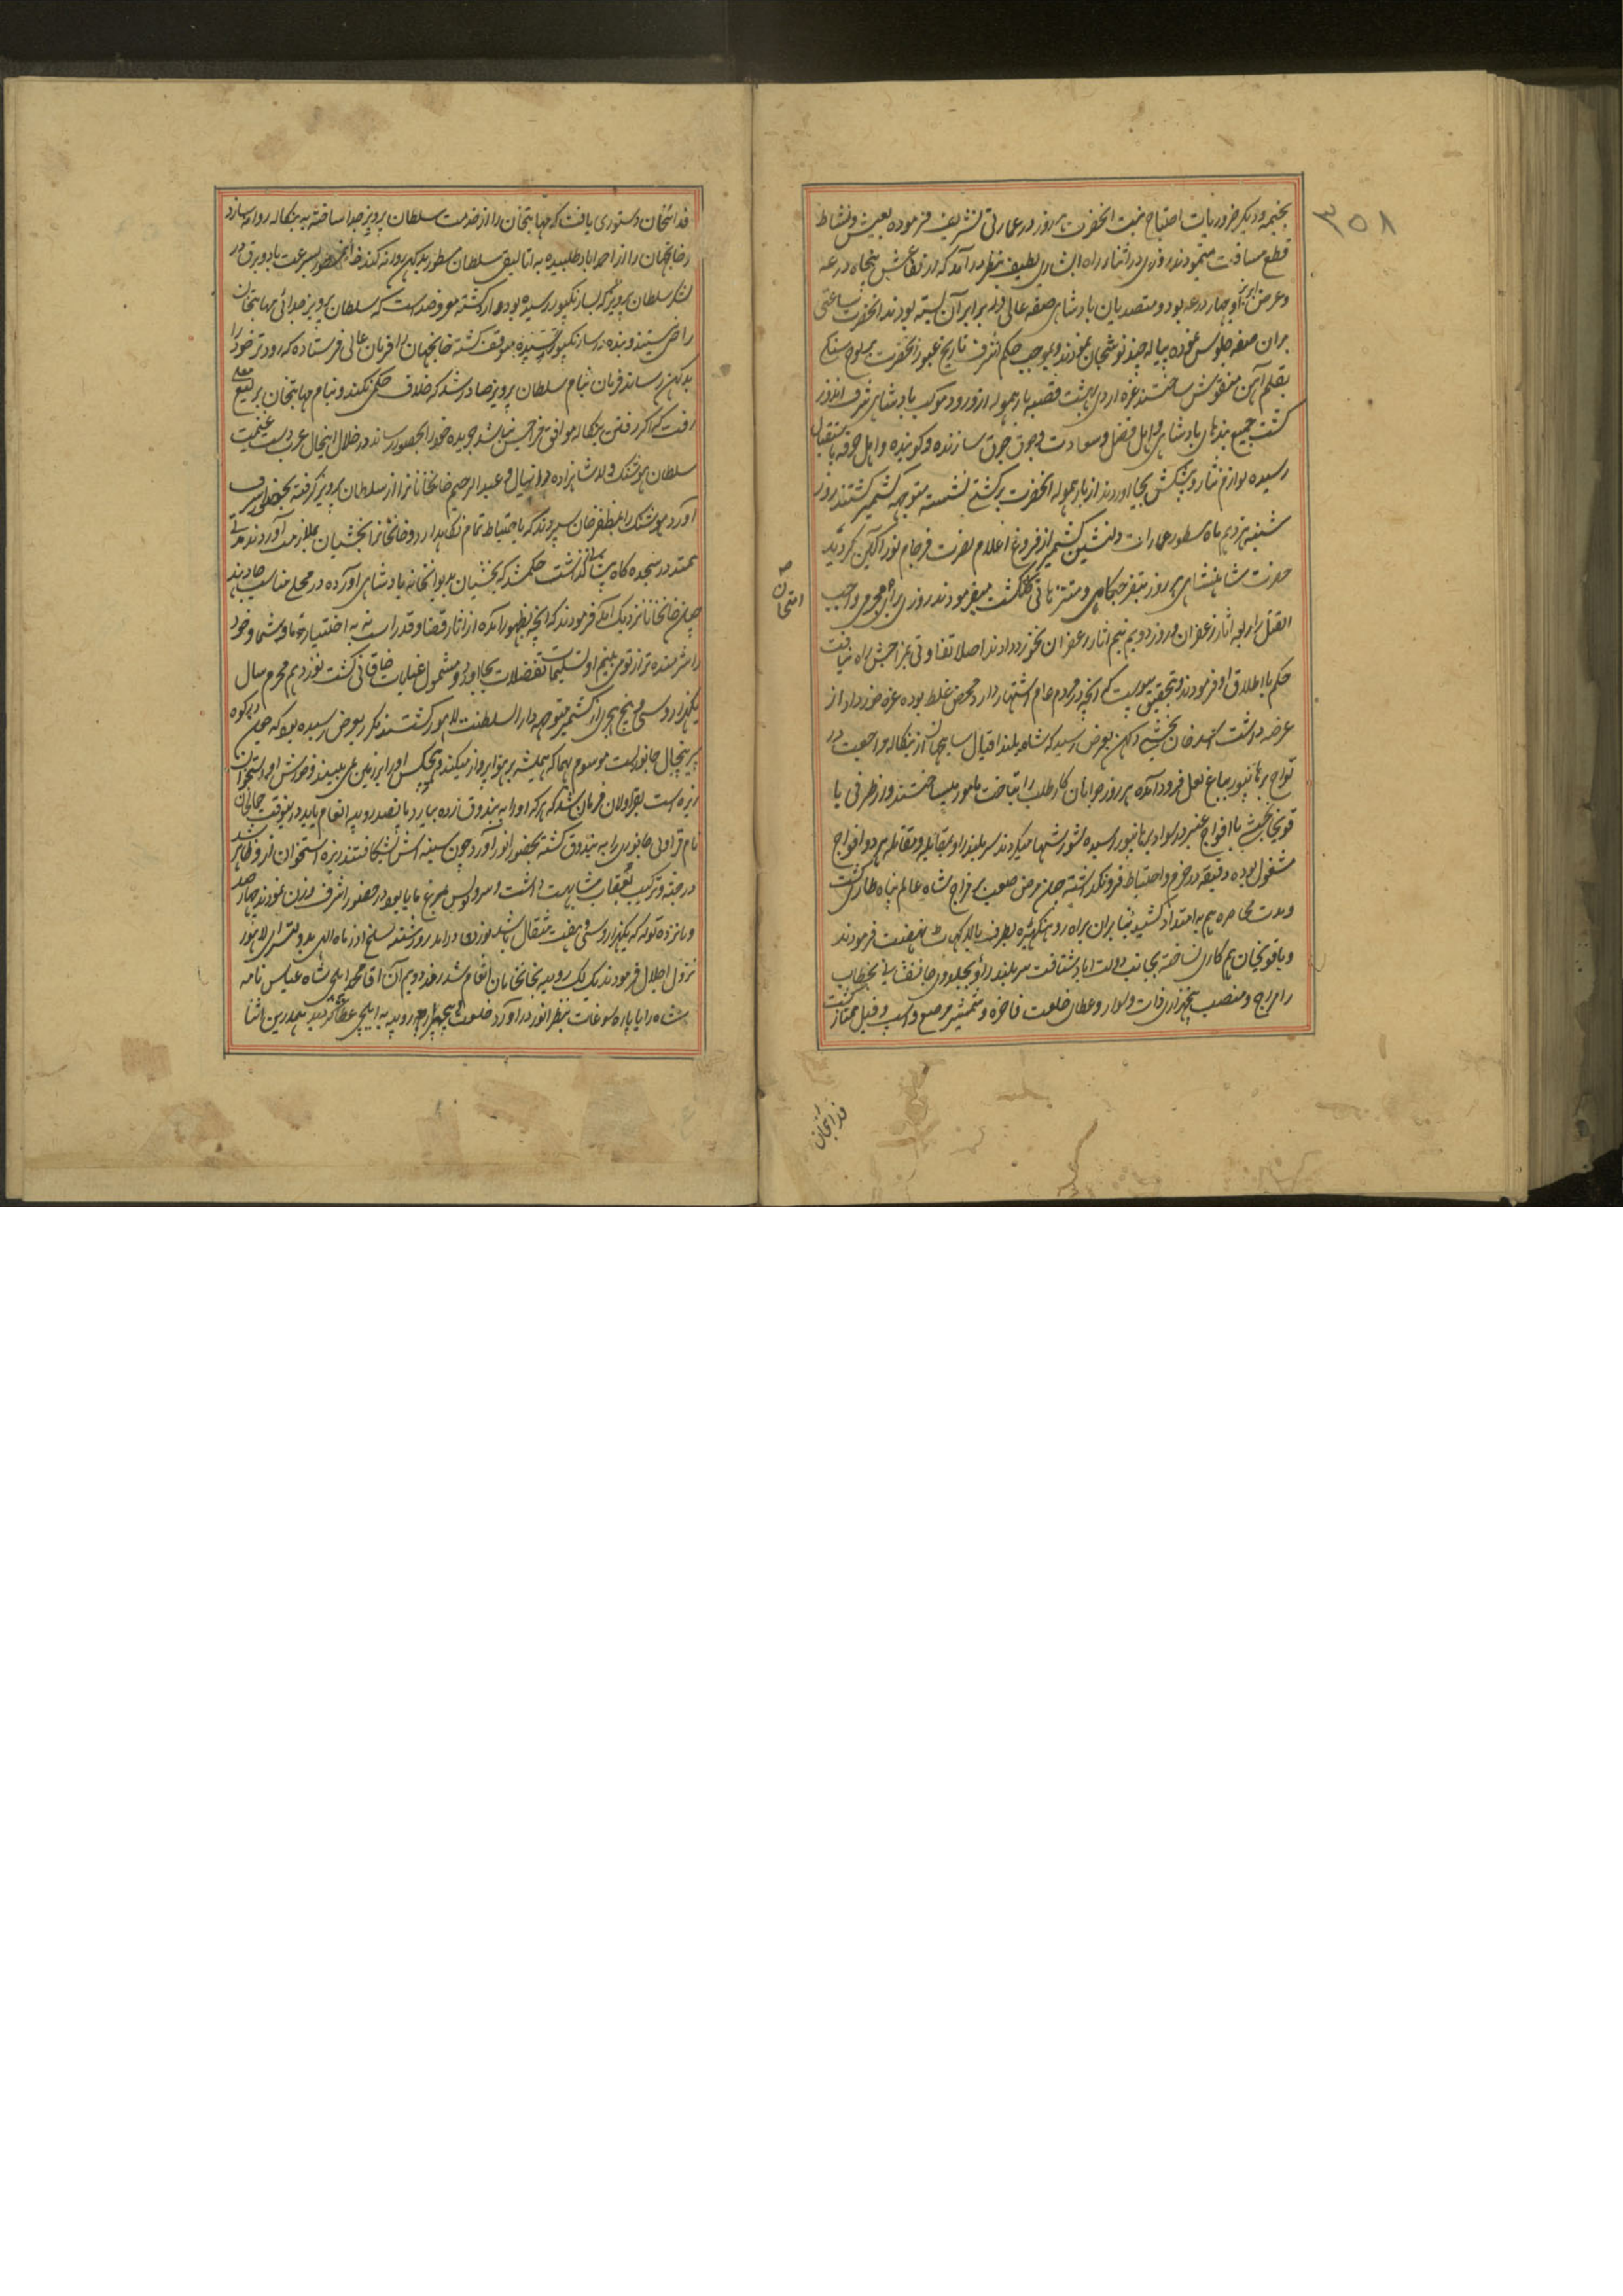 ۳۵۸
بخیمه و دیگر ضروریات احتیاج نیفتد انحضرت هر روز در عمارتی تشریف فرموده بعیش و نشاط
قطع مسافت مینمودند روزی در اثنار راه ابشاری لطیف بنظر در آمد که ارتفاعش پنجاه درعه
و عرض او چهار درعه بود و متصدیان بادشاهی صفه عالی در برابر آن بسته بودند انحضرت ساعتی
بران صفه جلوس نموده پیاله چند نوشجان نمودند و بموجب حکم اشرف تاریخ عبور انحضرت بر لوح سنک
بقلم آهن منقوش ساختند غره اردی بهشت قصبه بارهموله از ورود موکب بادشاهی شرف اندوز
کشت جمیع بندهای بادشاهی و اهل فضل و سعادت و جوق جوق سازنده و کوینده و اهل حرفه باستقبال
رسیده لوازم نثار و پیشکش بجا اوردند از بارهموله انحضرت بر کشتی نشسته متوجه کشمیر کشتند روز
شنبه نزدهم ماه مسطور عمارات دلنشین کشمیر از فروغ اعلام نصرت فرجام نور آکین کردید
حضرت شاهنشاهی هر روز بتفرجکاهی و متنزهاتی کلکشت میفرمودند روزی برای مجرمی واجب
امتحان
القتل را ربعه اثار زعفران و روز دویم نیم اثار زعفران بخورد دادند اصلا تفاوتی بمزاجش راه نیافت
حکم باطلاق او فرمودند و بتحقیق پیوست که انچه در مردم عوام اشتهار دارد محض غلط بوده غره خورداد از
عرضه داشت اسد خان بخشی دکهن بعرض رسید که شاه بلند اقبال شاهجهان از بنکاله مراجعت در
نواح برهانپور بباغ لعل فرود آمده هر روز جوانان کار طلب را بتاخت مامور میساختند و از طرفی یا
قوتخان حبشی با افواج عنبر در سواد برهانپور رسیده شورشها میکردند سر بلند راو بمقابله و مقاتله هر دو افواج
مشغول بوده دقیقه در حزم و احتیاط فرونکداشته چون مرض صعب بر مزاج شاه عالم پناه طاری کشت
و مدت محاصره هم به امتداد کشید بنابران براه روهنکهیره بطرف بالاکهات نهضت فرمودند
و یاقوتخان هم کاری نساخته بجانب دولت اباد شتافت سر بلند راو بجلدوی جانفشانی بخطاب
رامراج و منصب پنجهزاری ذات و سوار و عطای خلعت فاخره و شمشیر مرصع و اسپ و فیل ممتاز کشت
فدائیخان
فدائیخان دستوری یافت که مهابتخان را از خدمت سلطان پرویز جدا ساخته به بنکاله روانه سازد
و خانجهان را از احمداباد طلبیده به اتالیقی سلطان مسطور بدکهن روانه کند فدائیخان بسرعت باد و برق در
لشکر سلطان پرویز که بسارنکپور رسیده بود وارد کشته معروضداشت که سلطان پرویز بجدائی مهابتخان
راضی نیستند و بنده در سارنکپور رسیده متوقف کشته خانجهان را فرمان عالی فرستاده که زودتر خود را
بدکهن رساند فرمان بنام سلطان پرویز صادر شد که خلاف حکم نکنند و بنام مهابتخان یرلیغ معلی
رفت که اکر رفتن بنکاله موافق مزاجش نباشد جریده خود را بحضور رساند در خلال اینحال عرب دست غیب
سلطان هوشنک ولد شاهزاده دانیال و عبد الرحیم خانخانان را از سلطان پرویز کرفته بحضور اشرف
آورد هوشنک را بمظفر خان سپردند که باحتیاط تمام نکاهدارد و خانخانان را بخشیان بملازمت آوردند مدتی
ممتد در سجده کاه پیشانی کذاشت حکم شد که بخشیان بدیوانخانه بادشاهی آورده در محلی مناسب جا دهند
چون خانخانان نزدیک آمد فرمودند که انچه بظهور آمده از اثار قضا و قدر است نه به اختیار ما و شما و خود
را شرمنده تر از تو می بینم او تسلیمات تفضلات بجا اورد و مشمول عنایات خاقانی کشت نوزدهم محرم سال
یکهزار و سی و پنج هجری از کشمیر متوجه دار السلطنت لاهور کشتند مکرر بعرض رسیده بود که در کوه
پیر پنچال جانوریست موسوم بهما که همیشه بر هوا پرواز میکند و هیچکس او را بر زمین نمی بیند و خورش او استخوان
ریزه است بقراولان فرمان شد که هر که او را به بندوق زده بیارد پانصد روپیه انعام یابد درینوقت جمالخان
نام قراولی جانوری را به بندوق کشته بحضور انور آورد چون سینه اش شکافتند ریزه استخوان از و ظاهر شد
در جثه و ترکیب بعقاب مشابهت داشت و سر او بس مرغ ما یا بود در حضور اشرف وزن نمودند چهار صد
و پانزده توله که یکهزار و سی و هفت مثقال باشد بوزن در امد روز شنبه سلخ اذر ماه الهی بدولتسرای لاهور
نزول اجلال فرمودند یک لک روپیه بخانخانان انعام شد روز دویم آن اقا محمد ایلچی شاه عباس نامه
شاه را با پاره سوغات بنظر انور در آورد خلعت و پنجهزار روپیه به ایلچی عطا کردید همدرین اثنا